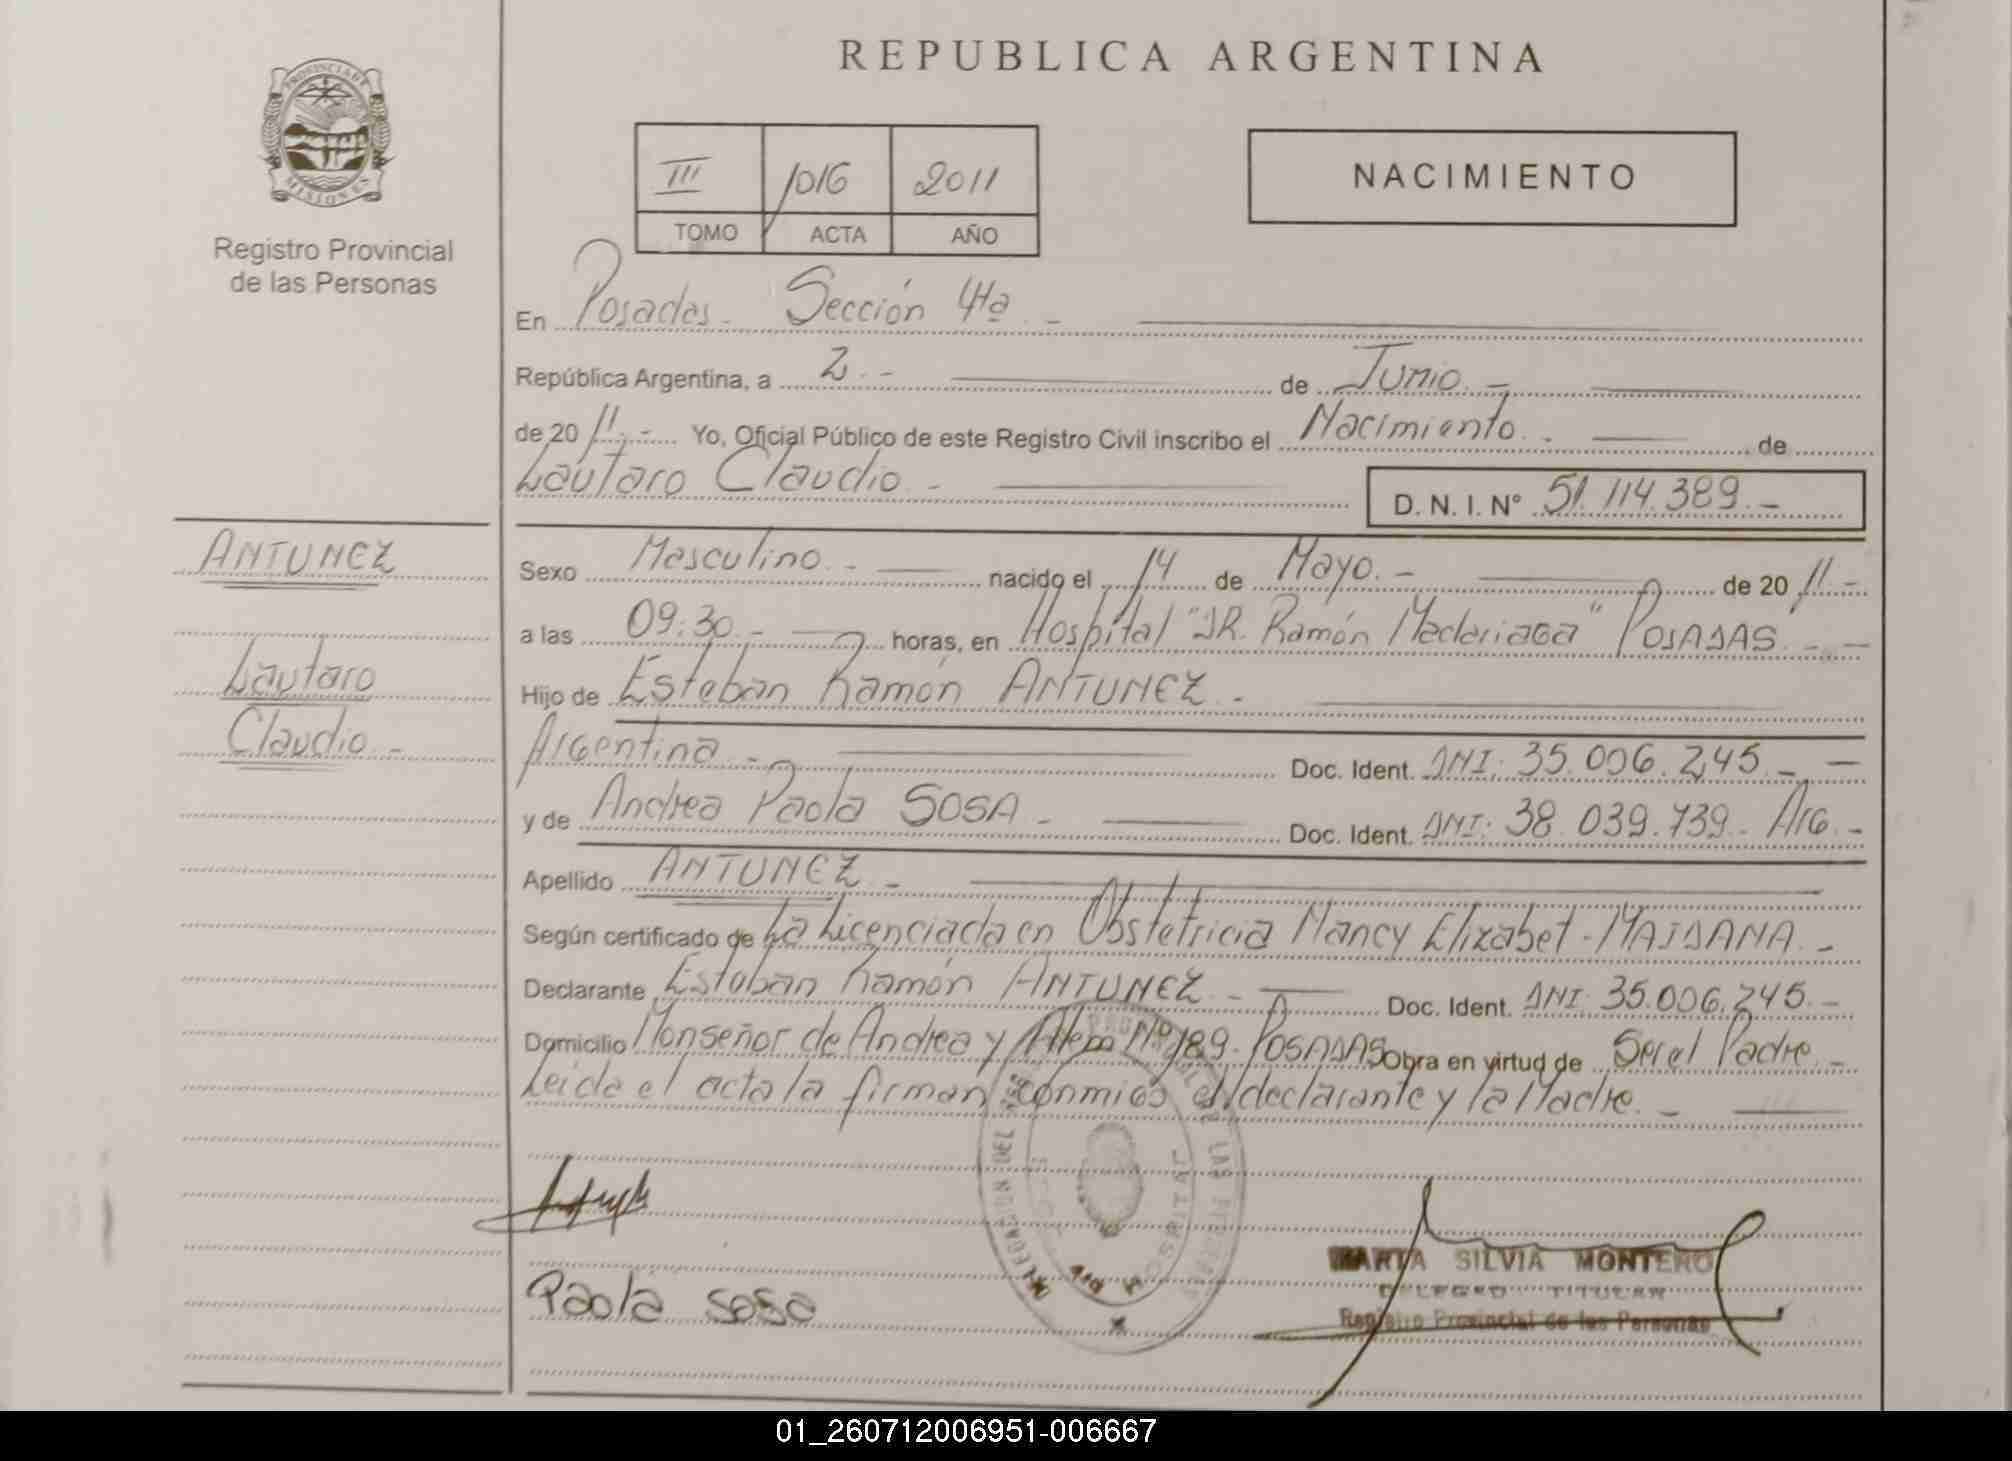 REPUBLICA ARGENTINA
PROVINCIA DE
MISIONES
Registro Provincial
de las Personas
III 1016 2011
TOMO ACTA AÑO
NACIMIENTO
En Posadas - Sección 4ta -
República Argentina, a 2.- de Junio.-
de 20 11.- Yo, Oficial Público de este Registro Civil inscribo el Nacimiento.- de
Lautaro Claudio.- D. N. I. Nº 51.114.389.-
ANTUNEZ
Lautaro
Claudio.-
Sexo Masculino.- nacido el 14 de Mayo.- de 20 11.-
a las 09:30.- horas, en Hospital "DR. Ramón Madariaga" POSADAS.-
Hijo de Esteban Ramón ANTUNEZ.-
Argentina.- Doc. Ident. DNI: 35.006.245.-
y de Andrea Paola SOSA.- Doc. Ident. DNI: 38.039.739- Arg.-
Apellido ANTUNEZ.-
Según certificado de La Licenciada en Obstetricia Nancy Elizabet-MAIDANA.-
Declarante Esteban Ramón ANTUNEZ.- Doc. Ident. DNI: 35.006.245.-
Domicilio Monseñor de Andrea y Alem Nº 189- POSADAS Obra en virtud de Ser el Padre.-
Leida el acta la firman conmigo el declarante y la Madre.-
Paola Sosa
DELEGACION DEL REG. PROVINCIAL DE LAS PERSONAS
HOSPITAL
MARTA SILVIA MONTERO
DELEGADO TITULAR
Registro Provincial de las Personas
01_260712006951-006667